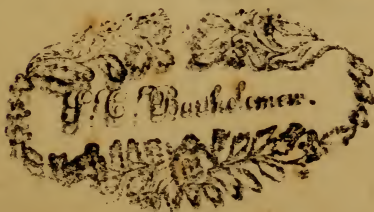 J. C. Bartholomew.